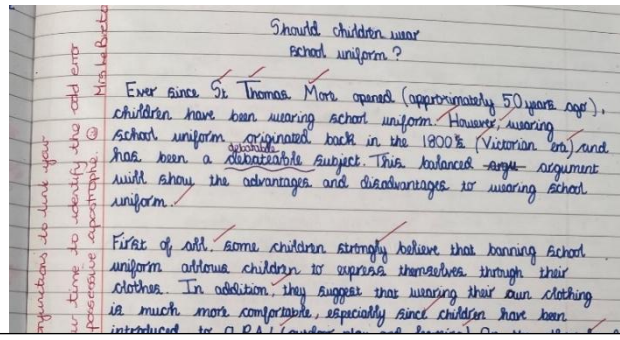 Should children wear
school uniform?
Ever since St Thomas More opened (approximately 50 years ago),
children have been wearing school uniform. However, wearing
school uniform originated back in the 1800's (Victorian era) and
debatable
has been a debateable subject. This balanced argu argument
will show the advantages and disadvantages to wearing school
uniform.
First of all, some children strongly believe that banning school
uniform allows children to express themselves through their
clothes. In addition, they suggest that wearing their own clothing
is much more comfortable, especially since children have been
introduced to OPAL
to link your
time to identify the odd error
possessive apostrophe.